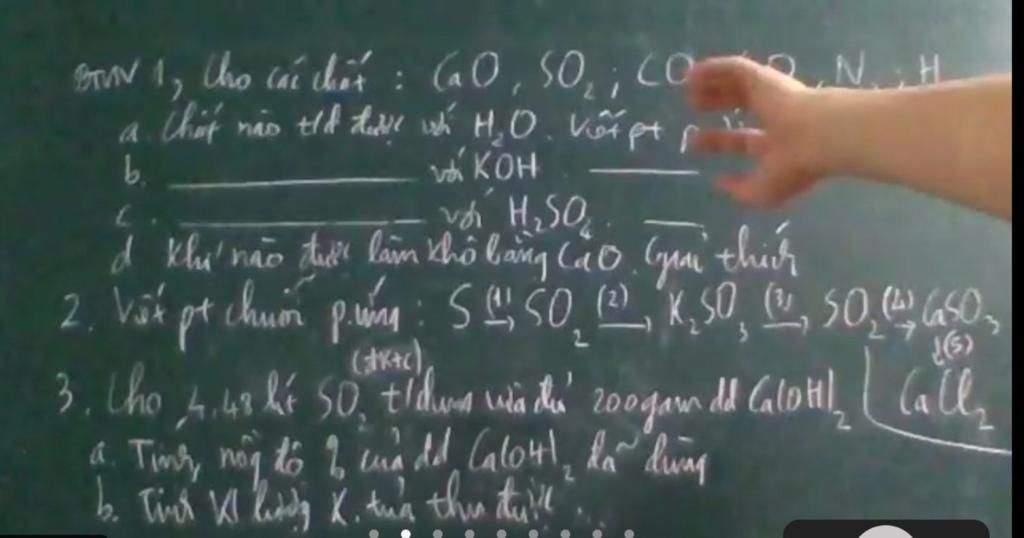 BTVN 1, Cho các chất : CaO, SO₂; CO , N ; H
a. Chất nào t/d được với H₂O. Viết pt p
b. ________ với KOH ____
c. ________ với H₂SO₄. ___
d Khí nào được làm khô bằng CaO. Giải thích
2. Viết pt chuỗi p.ứng : S (1)→ SO₂ (2)→ K₂SO₃ (3)→ SO₂ (4)→ CaSO₃
↓(5)
(đktc)
3. Cho 4,48 lít SO₂ t/dụng vừa đủ 200gam dd Ca(OH)₂
CaCl₂
a. Tính nồng độ % của dd Ca(OH)₂ đã dùng
b. Tính Kl lượng K. tủa thu được...